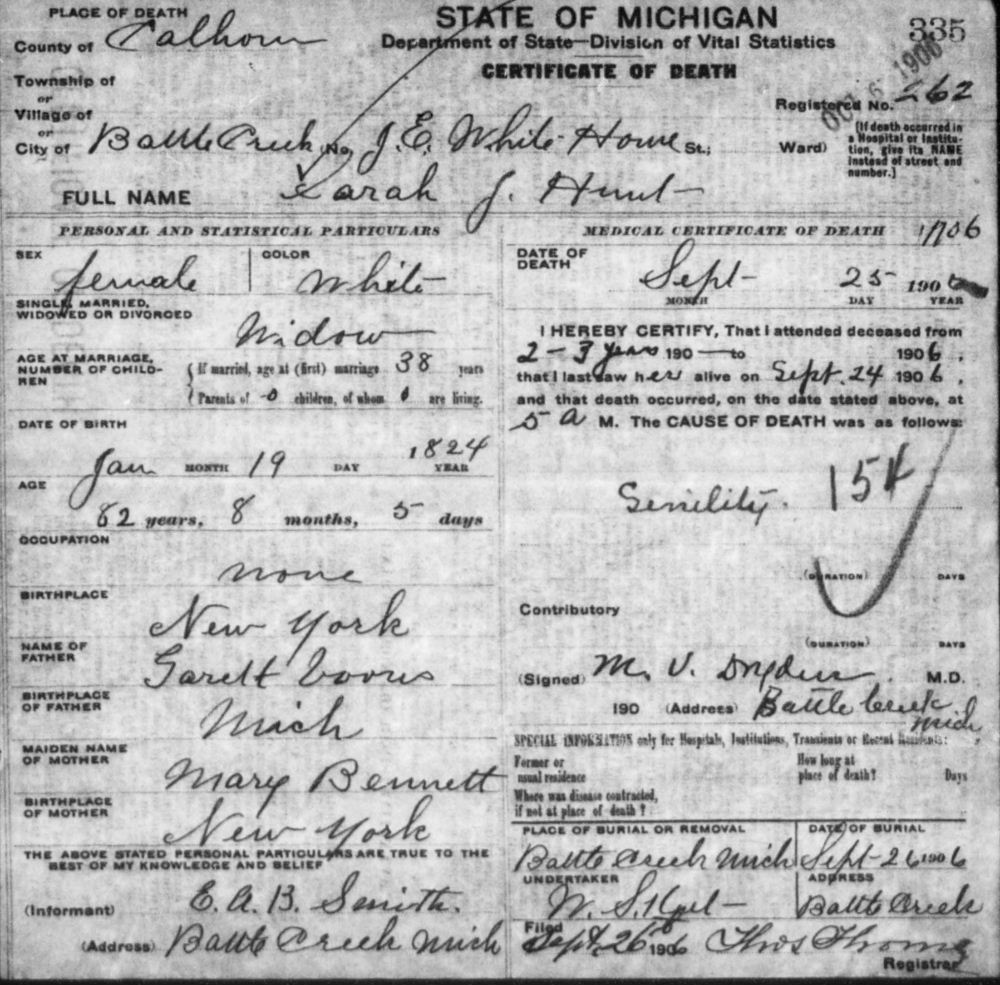 PLACE OF DEATH
County of Calhoun
Township of
or
Village of
or
City of Battle Creek (No. J. E. White Home St.; Ward)
STATE OF MICHIGAN
Department of State—Division of Vital Statistics
CERTIFICATE OF DEATH
335
OCT 6 1906
Registered No. 262
[If death occurred in
a Hospital or Institu-
tion, give its NAME
instead of street and
number.]
FULL NAME Sarah J. Hunt
PERSONAL AND STATISTICAL PARTICULARS
SEX
female
COLOR
White
SINGLE, MARRIED,
WIDOWED OR DIVORCED
Widow
AGE AT MARRIAGE,
NUMBER OF CHILD-
REN
If married, age at (first) marriage 38 years
Parents of 0 children, of whom 0 are living.
DATE OF BIRTH
Jan MONTH 19 DAY 1824 YEAR
AGE
82 years, 8 months, 5 days
OCCUPATION
none
BIRTHPLACE
New York
NAME OF
FATHER
Garett
BIRTHPLACE
OF FATHER
Mich
MAIDEN NAME
OF MOTHER
Mary Bennett
BIRTHPLACE
OF MOTHER
New York
THE ABOVE STATED PERSONAL PARTICULARS ARE TRUE TO THE
BEST OF MY KNOWLEDGE AND BELIEF
(Informant) E. A. B. Smith.
(Address) Battle Creek Mich
MEDICAL CERTIFICATE OF DEATH
DATE OF
DEATH
Sept 25 1906
MONTH DAY YEAR
I HEREBY CERTIFY, That I attended deceased from
2 - 3 years 190 — to 1906,
that I last saw her alive on Sept. 24 1906,
and that death occurred, on the date stated above, at
5 A M. The CAUSE OF DEATH was as follows:
Senility. 154
(DURATION) DAYS
Contributory
(DURATION) DAYS
(Signed) M. V. Dryden M.D.
190 (Address) Battle Creek
Mich
SPECIAL INFORMATION only for Hospitals, Institutions, Transients or Recent Residents:
Former or
usual residence
How long at
place of death? Days
Where was disease contracted,
if not at place of death?
PLACE OF BURIAL OR REMOVAL
Battle Creek Mich
DATE OF BURIAL
Sept 26 1906
UNDERTAKER
W. S.
ADDRESS
Battle Creek
Filed
Sept. 26 1906 Thos Thorne
Registrar